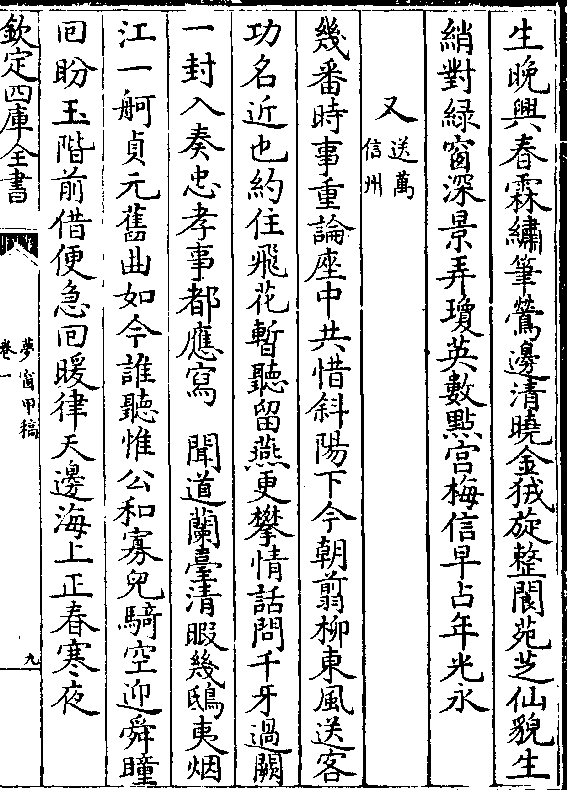 生晩興春霖繡筆鶯邊清曉金狨旋整閬苑芝仙貌生
綃對緑窗深景弄瓊英數點宫梅信早占年光永
又送萬信州
幾番時事重論座中共惜斜陽下今朝翦柳東風送客
功名近也約住飛花暫聽留燕更攀情話問千牙過闕
一封入奏忠孝事都應寫　聞道蘭臺清暇幾鴟夷烟
江一舸貞元舊曲如今誰聽惟公和寡兒騎空迎舜瞳
回盼玉階前借便急回暖律天邊海上正春寒夜
欽定四庫全書
夢窗甲稿
卷一
九